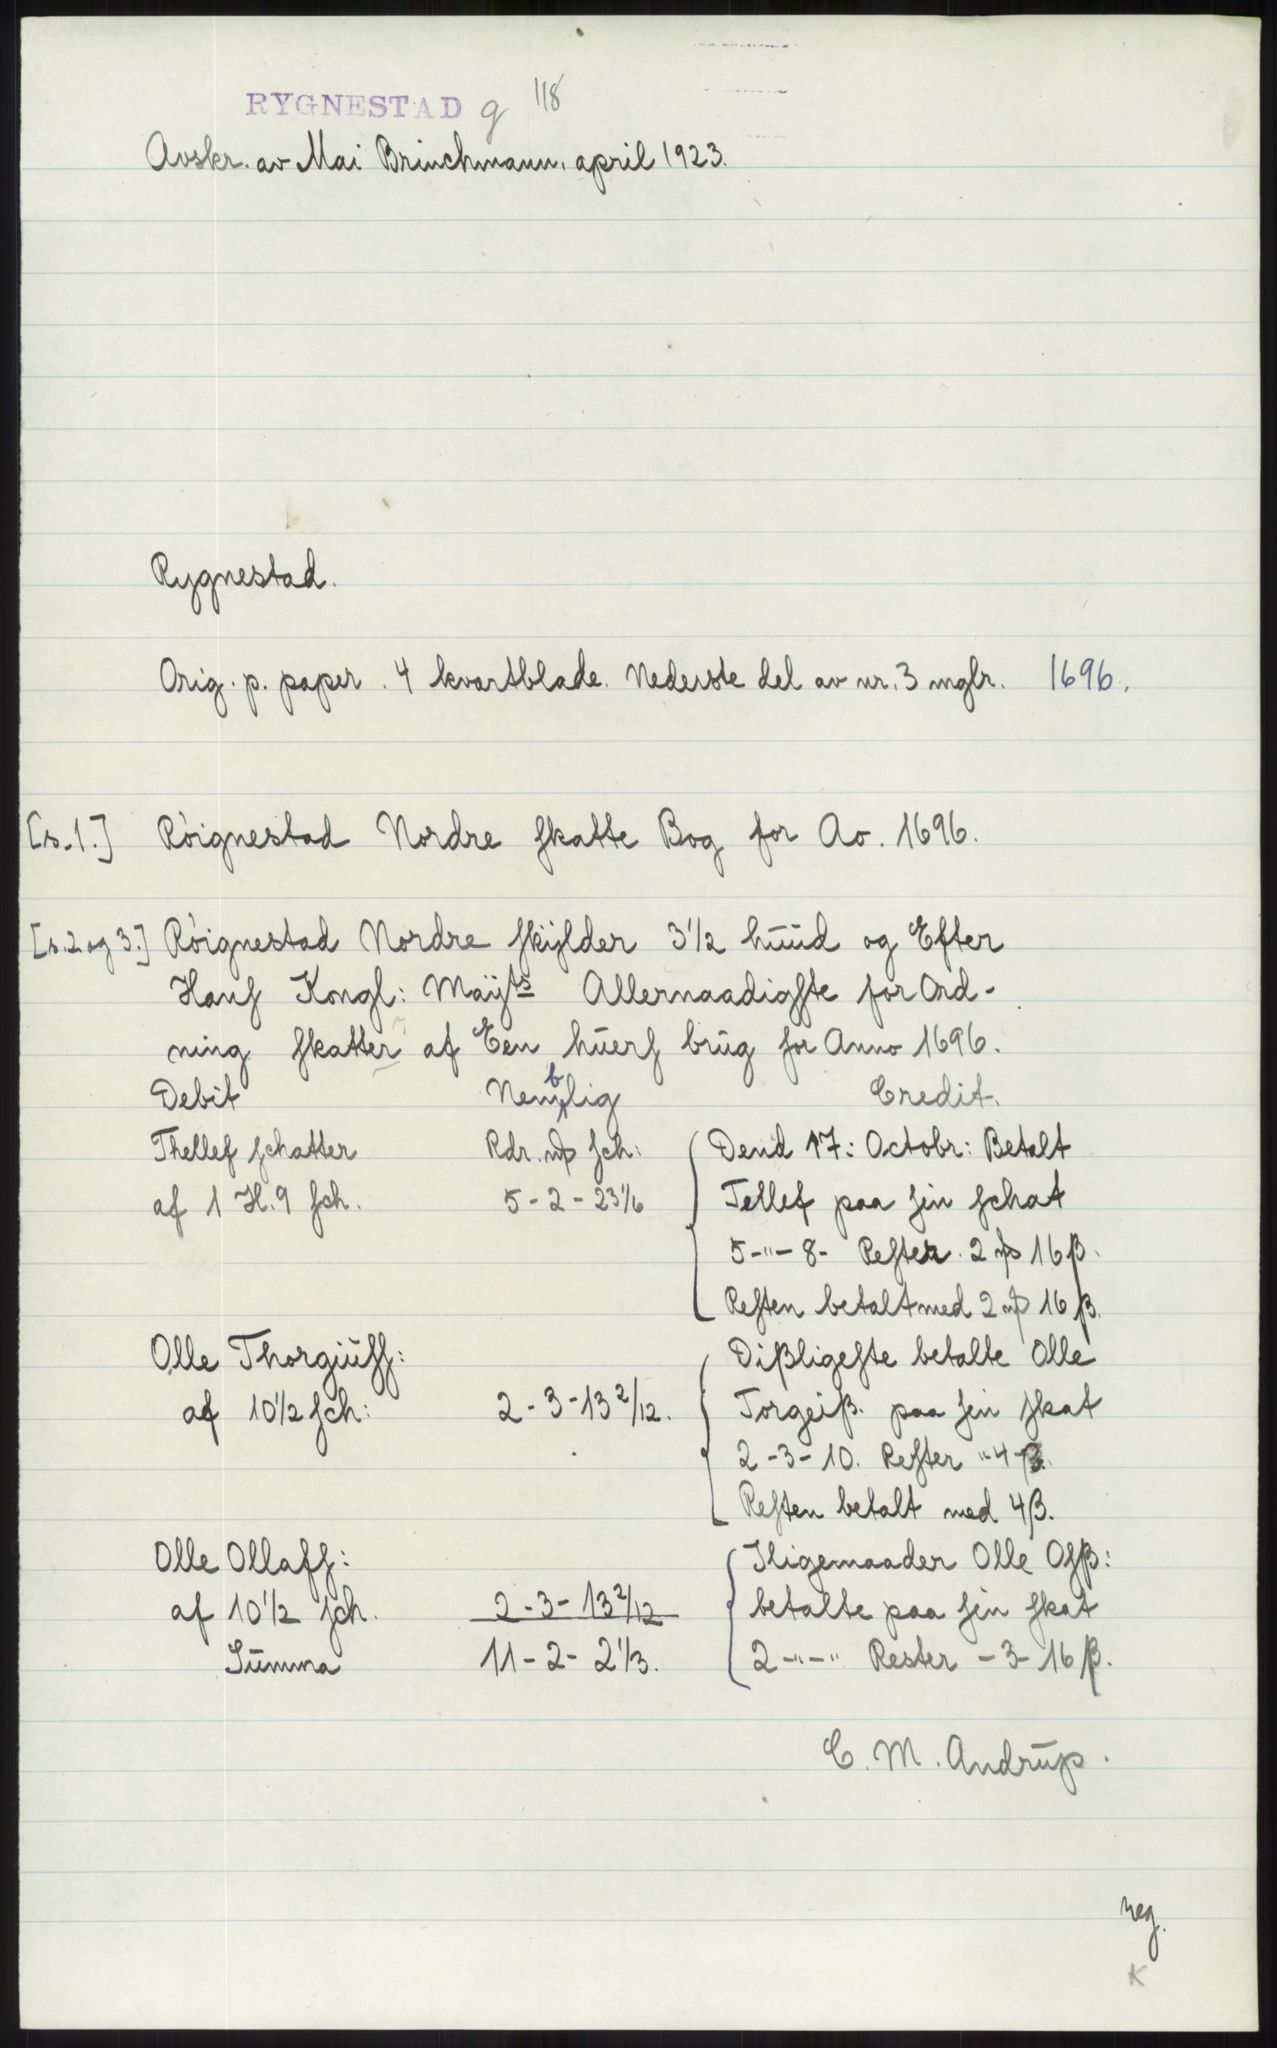 RYGNESTAD g 118
Avskr. av Mai Brinchmann, april 1923.
Rygnestad.
Orig. p. papir. 4 kvartblade. Nederste del av nr. 3 mglr. 1696.
[s. 1.] Röignestad Nordre ſkatte Bog for Ao. 1696.
[s. 2 og 3.] Röignestad Nordre ſkÿlder 3 1/2 hŭŭd og Efter
Hanſ Kongl: Maÿts Allernaadigſte for Ord-
ning ſkatter af Een hŭerſ brŭg for Anno 1696.
Debit Nemblig Credit.
Thellef ſchatter Rdr. mþ ſch: Dend 17: Octobr: Betalt
af 1 H. 9 ſch. 5 - 2 - 23 1/6 Tellef paa ſin ſchat
5 - " - 8 - Reſter 2 mþ 16 β.
Reſten betalt med 2 mþ 16 β.
Olle Thorgiŭſſ: Dißligeſte betalte Olle
af 10 1/2 ſch: 2 - 3 - 13 2/12. Torgeiß. paa ſin ſkat
2 - 3 - 10. Reſter " 4 β.
Reſten betalt med 4 β.
Olle Ollaſſ: Iligemaader Olle Olß:
af 10 1/2 ſch. 2 - 3 - 13 2/12 betalte paa ſin ſkat
Sŭmma 11 - 2 - 2 1/3. 2 - " - " Rester - 3 - 16 β.
C. M. Andrŭp.
reg.
K